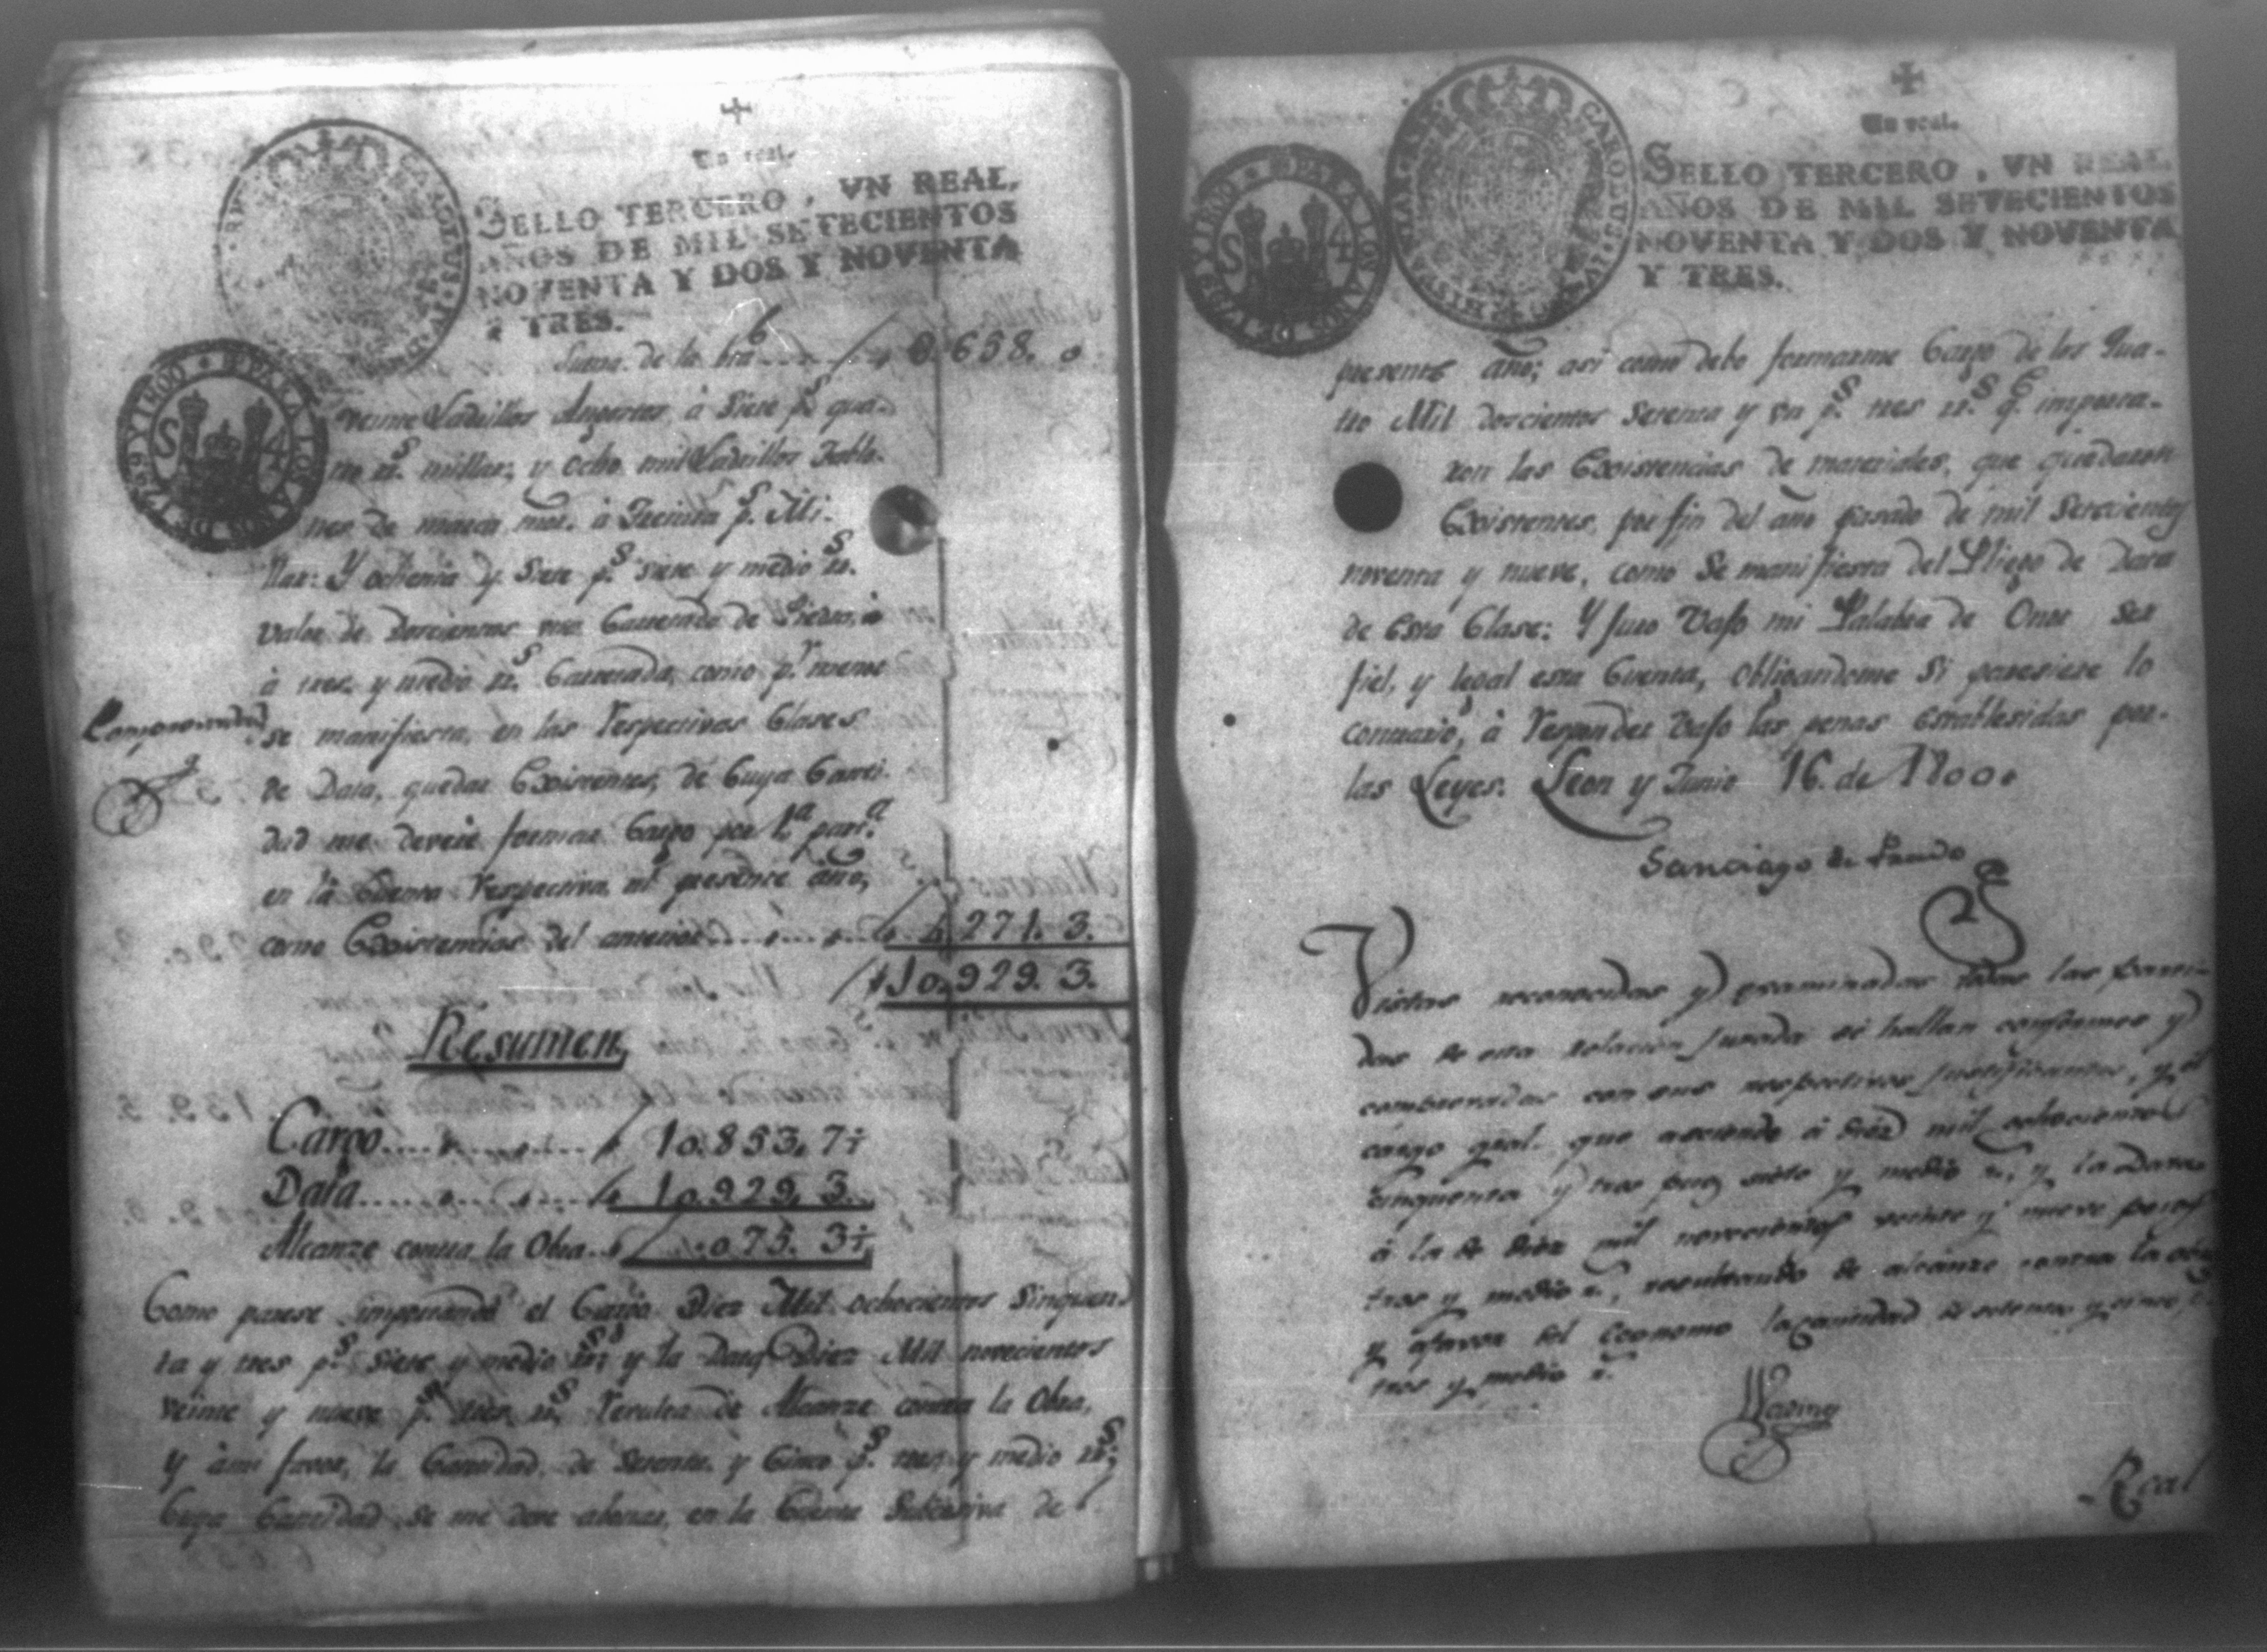 Un real.
SELLO TERCERO, VN REAL,
AÑOS DE MIL SETECIENTOS
NOVENTA Y DOS Y NOVENTA
Y TRES.
CAROLUS IV
PARA LOS AÑOS DE 1799 Y 1800
S 4
Suma de la 6.658. 0
veinte Ladrillos à Siete p.s qua-
tro rr.s millar, y Ocho mil Ladrillos Tabla-
nes de marca mor. à Treinta p.s Mi-
llar: Y ochenta y Siete p.s siete y medio rr.s
Valor de Dorcientas una Carretada de Piedra,
à tres y medio rr.s Carretada, como p.r menor
se manifiesta, en las Respectivas Clases
de Data, quedar Existentes, de Cuya Canti-
dad me deveré formar Cargo por 1.a part.a
en la Cuenta Respectiva al presente año,
como Existencias del anterior 4.271. 3.
10.929. 3.
Comprovante
Resumen
Cargo 10.853. 7½
Data 10.929. 3
Alcanze contra la Obra 075. 3½
Como parese importando el Cargo Diez Mil ochocientos Sinquen-
ta y tres p.s Siete y medio rr.s y la Data Diez Mil novecientos
veinte y nueve p.s tres rr.s Resulta de Alcanze contra la Obra,
y à mi favor, la Cantidad de Setenta y Cinco p.s tres y medio rr.s;
Cuya Cantidad se me deve abonar, en la Cuenta Subcesiva de
Un real.
SELLO TERCERO, VN REAL
AÑOS DE MIL SETECIENTOS
NOVENTA Y DOS Y NOVENTA
Y TRES.
CAROLUS IV
PARA LOS AÑOS DE 1799 Y 1800
S 4
presente año; asi como debo formarme Cargo de los Qua-
tro Mil dorcientos Setenta y un p.s tres rr.s q.e importa-
ron las Existencias de materiales, que quedaron
Existentes, por fin del año pasado de mil Setecientos
noventa y nueve, como Se manifiesta del Pliego de Data
de esta Clase: Y Juro Vajo mi Palabra de Onor ser
fiel, y legal esta Cuenta, obligandome Si paresiere lo
contrario, à Responder Vajo las penas establesidas por
las Leyes. Leon y Junio 16. de 1800.
Santiago de Pando
Vistas reconocidas y examinadas todas las parti-
das de esta relacion jurada se hallan conformes y
comprovadas con sus respectivos justificantes, y el
cargo gral. que asciende à diez mil ochocientos
cinquenta y tres pesos siete y medio r.s y la Data
à la de diez mil novecientos veinte y nueve pesos
tres y medio r.s, resultando de alcanze contra la obra
y afavor del Economo la cantidad de setenta y cinco p.s
tres y medio r.s
Real